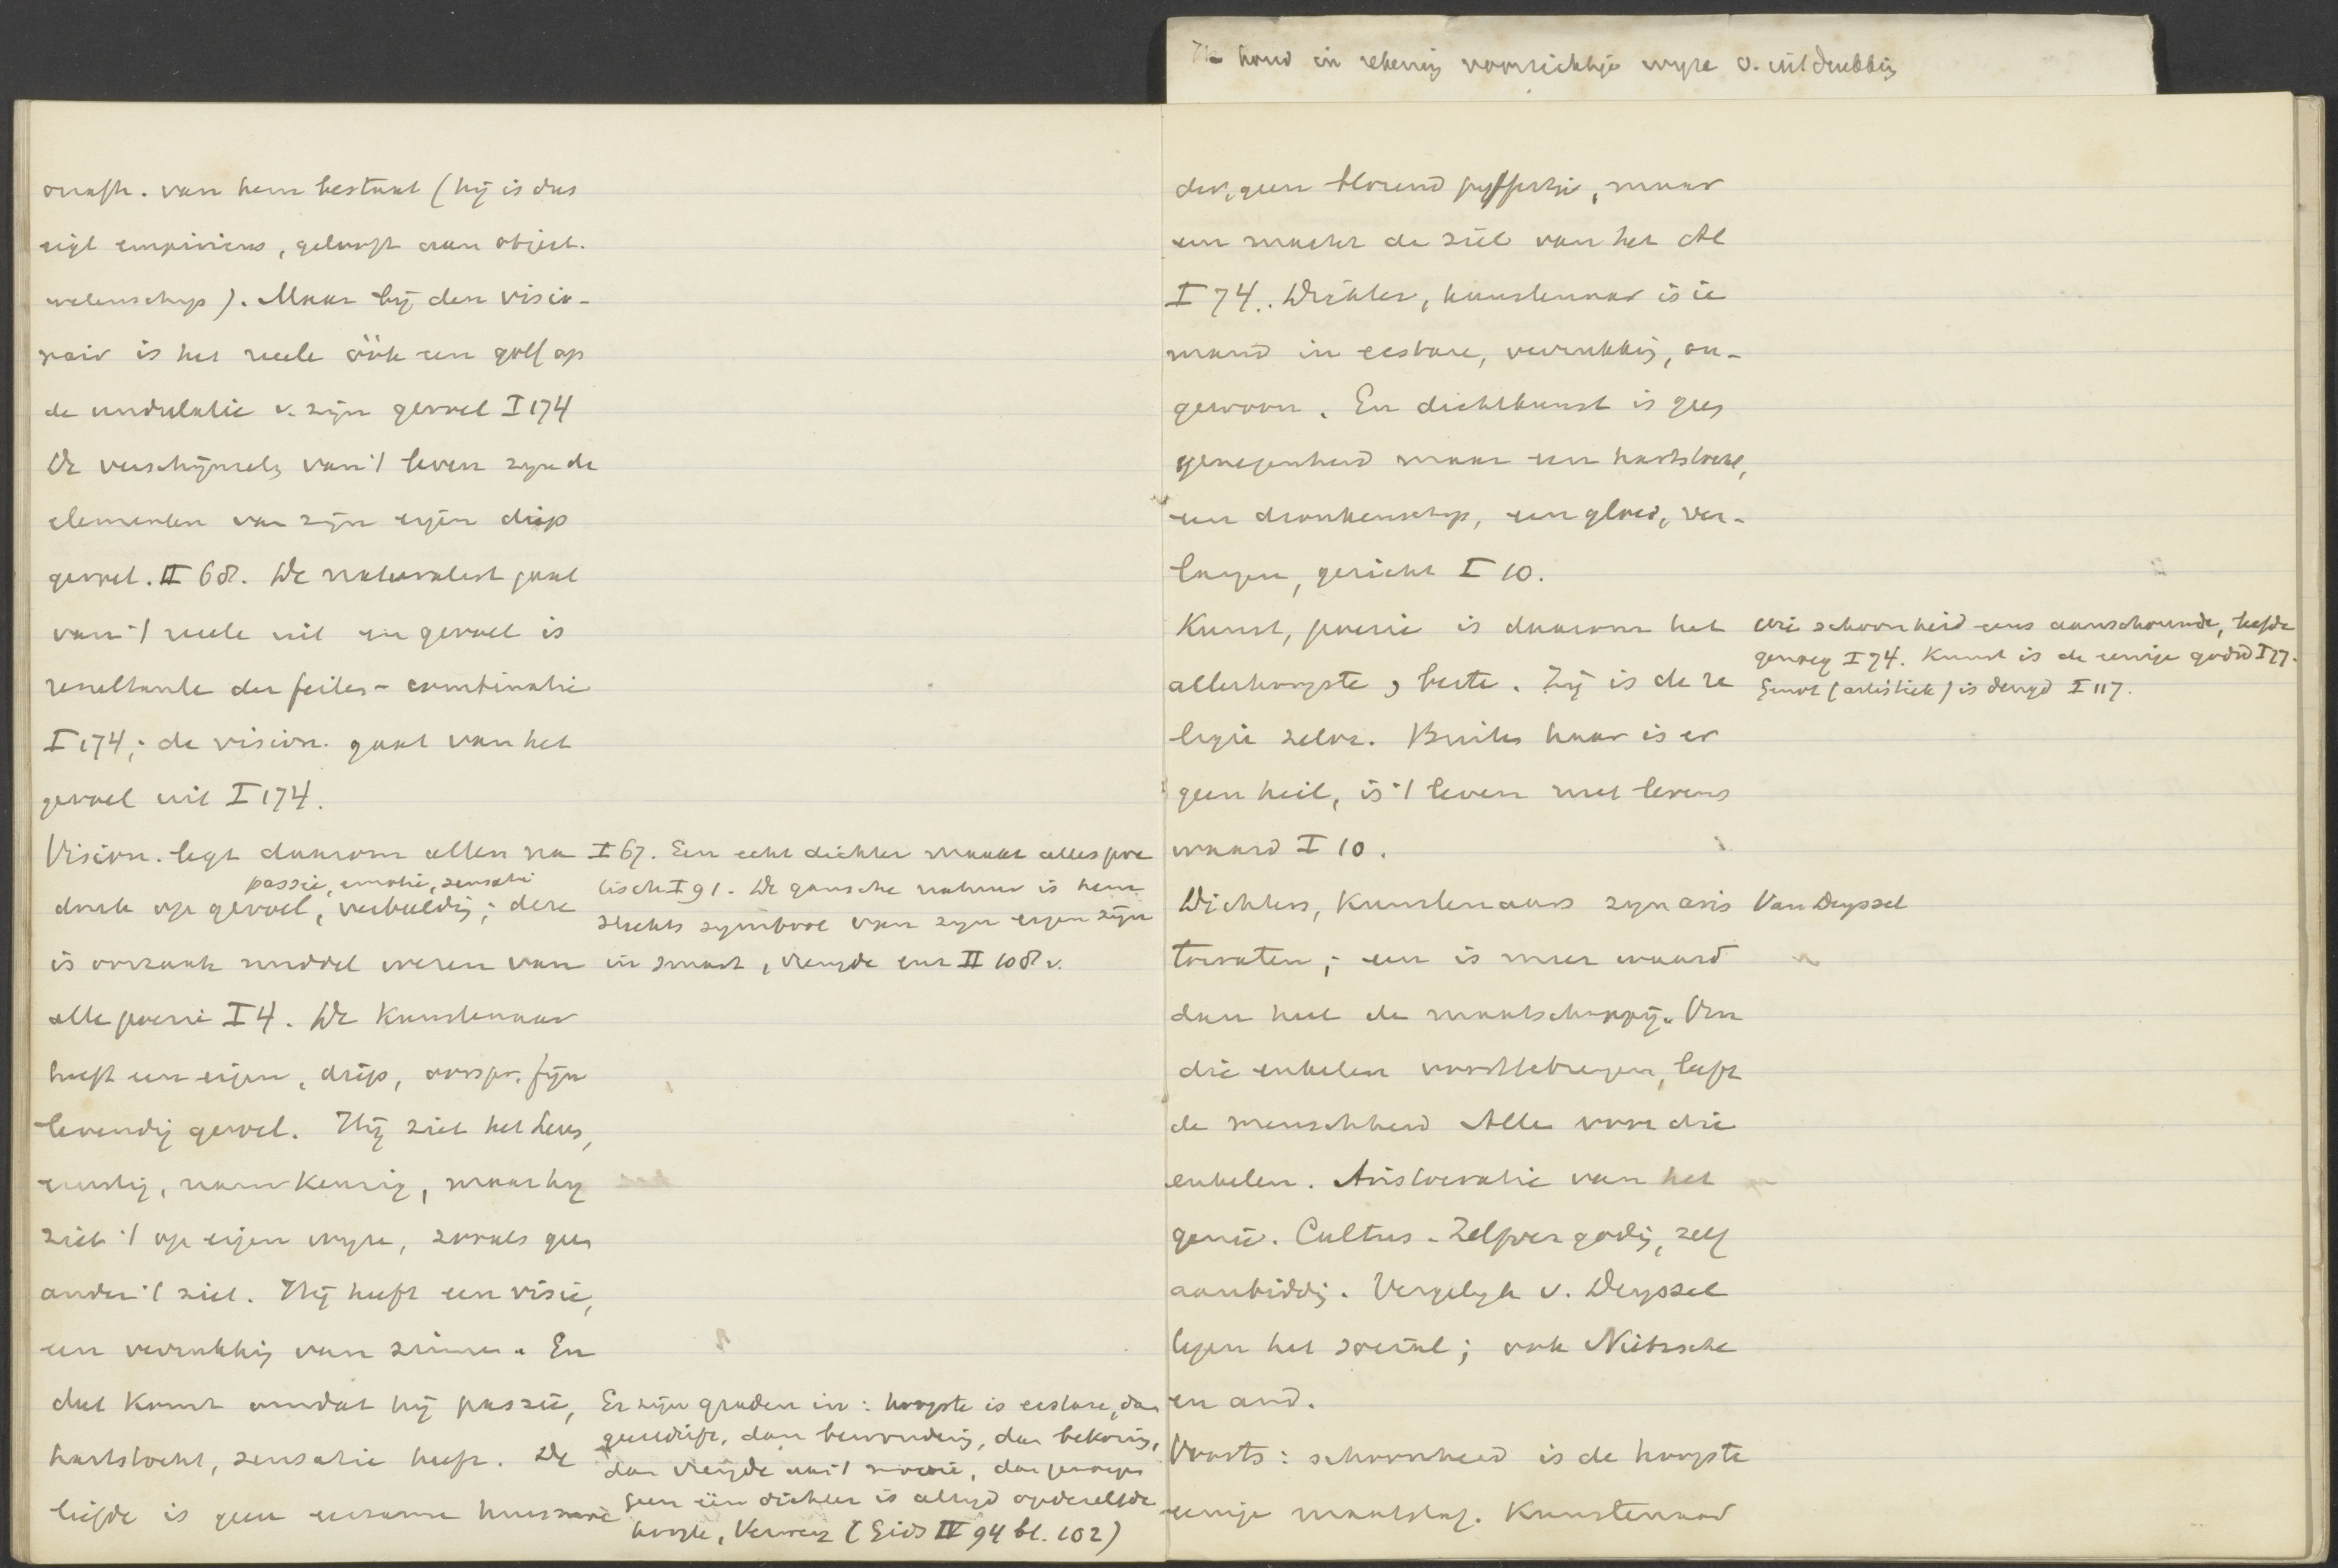 Ik houd in rekening voorzichtige wyze v. uitdrukking
onafh. van hem bestaat (hij is dus
eigl empiricus, gelooft aan object.
wetenschap). Maar bij den visio-
nair is het reële óók een golf op
de undulatie v. zijn gevoel I 174
De verschijnselen van 't leven zijn de
elementen van zijn eigen diep
gevoel. II 68. De naturalist gaat
van 't reele uit en gevoel is
resultante der feiten-combinatie
I 174; de vision. gaat van het
gevoel uit I 174.
Vision. legt daarom allen na
passie, emotie, sensatie
druk op gevoel, verbeelding; deze
is oorzaak middel wezen van
alle poezie I 4. De Kunstenaar
heeft een eigen, diep, oorspr. fijn
levendig gevoel. Hij ziet het leven,
ernstig, nauwkeurig, maar hy
ziet 't op eigen wyze, zooals geen
ander 't ziet. Hij heeft een visie,
een verrukking van zinnen. En
dat komt omdat hij passie,
hartstocht, sensatie heeft. De
liefde is geen eerzame huismoe
I 67. Een echt dichter maakt alles poe
tisch I 91. De gansche natuur is hem
slechts symbool van zyn eigen zijn
in smart, vreugde enz II 108 v.
Er zijn graden in: hoogste is ecstase, dan
geestdrift, dan bewondering, dan bekoring,
dan vreugde aan 't mooie, dan genoegen
Geen één dichter is altyd op dezelfde
hoogte, Verwey (Gids IV 94 bl. 102)
der, geen blozend juffertje, maar
een macht de ziel van het Al
I 74. Dichter, kunstenaar is ie
mand in ecstase, verrukking, on-
gewoon. En dichtkunst is geen
genegenheid maar een hartstocht,
een dronkenschap, een gloed, ver-
langen, gericht I 10.
Kunst, poezie is daarom het
allerhoogste, beste. Zij is de re
ligie zelve. Buiten haar is er
geen heil, is 't leven niet levens
waard I 10.
Dichters, Kunstenaars zyn aris
tocraten; een is meer waard
dan heel de maatschappij. Om
die enkelen voorttebrengen, leeft
de menschheid Alle voor die
enkelen. Aristocratie van het
genie. Cultus - Zelfvergoding, zelf
aanbidding. Vergelyk v. Deyssel
tegen het sociäl; ook Nietzsche
en and.
Voorts: schoonheid is de hoogste
eenige maatstaf. Kunstenaar
Wie schoonheid eens aanschouwde, leefde
genoeg I 74. Kunst is de eenige godsd I 77.
Genot (artistiek) is deugd I 117.
Van Deyssel